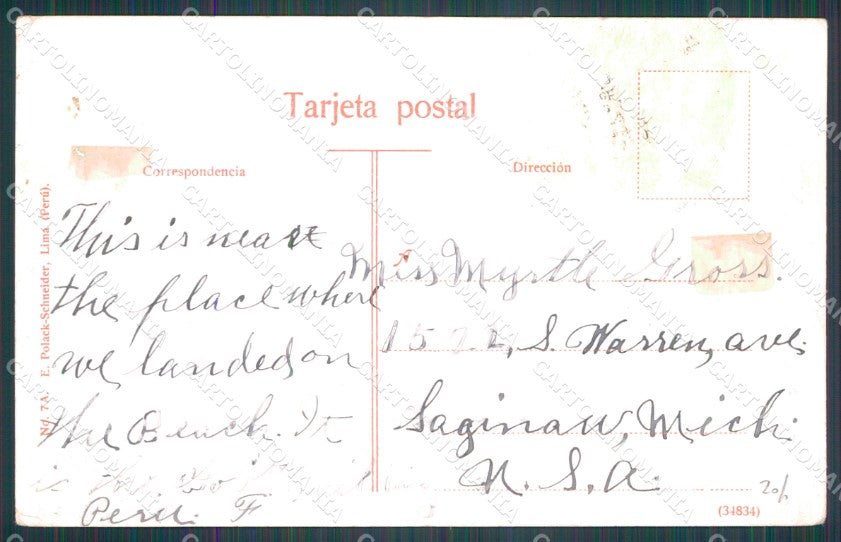 Tarjeta postal
Correspondencia
Dirección
Nd. 7A. E. Polack-Schneider, Lima (Perú).
This is near
the place where
we landed on
the Beach. It
is the
Peru. F
Miss Myrtle Gross.
1522, S. Warren, ave.
Saginaw, Mich.
U. S. A.
20/
(34834)
CARTOLINOMANIA